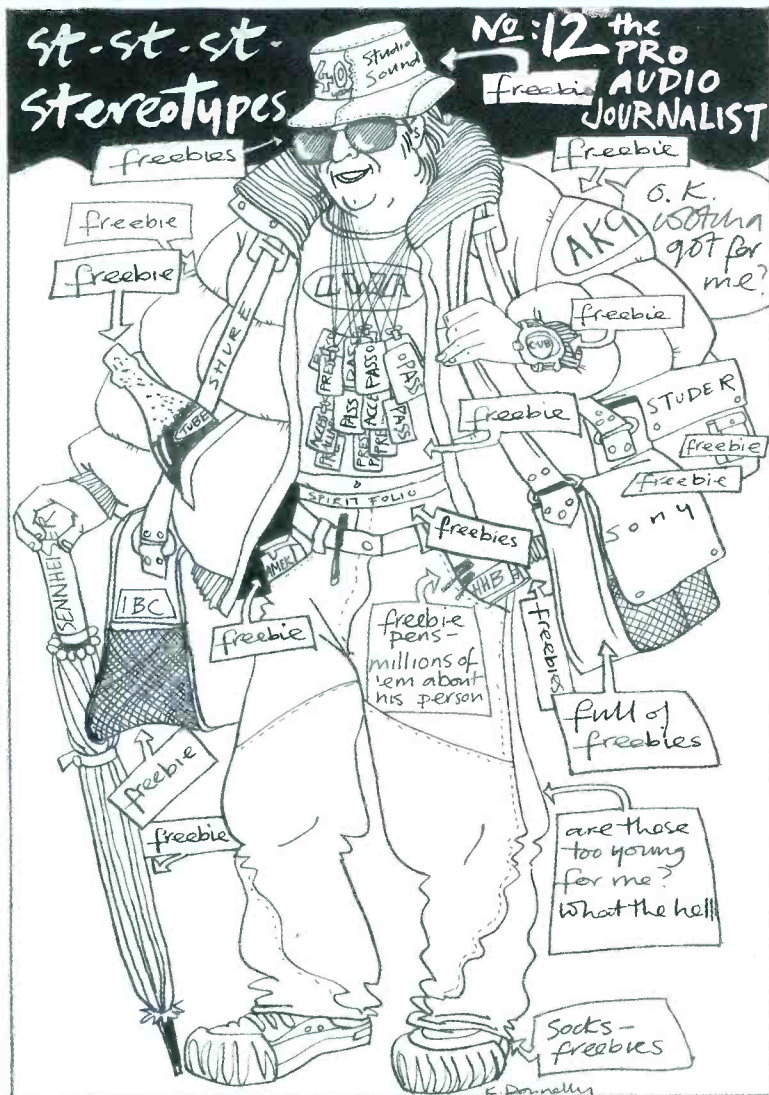 st-st-st-
stereotypes
No:12 the
PRO
AUDIO
JOURNALIST
Studio
Sound
freebie
freebies
freebie
freebie
freebie
O.K.
wotcha
got for
me?
AKG
freebie
SHURE
TUBE
PRESS
PASS
PASS
PASS
PASS
PRESS
freebie
STUDER
freebie
freebie
Sony
SPIRIT FOLIO
freebies
SENNHEISER
IBC
AMEK
HHB
freebie
freebie
pens-
millions of
'em about
his person
freebies
full of
freebies
freebie
freebie
are these
too young
for me?
what the hell
Socks-
freebies
E. Donnelly